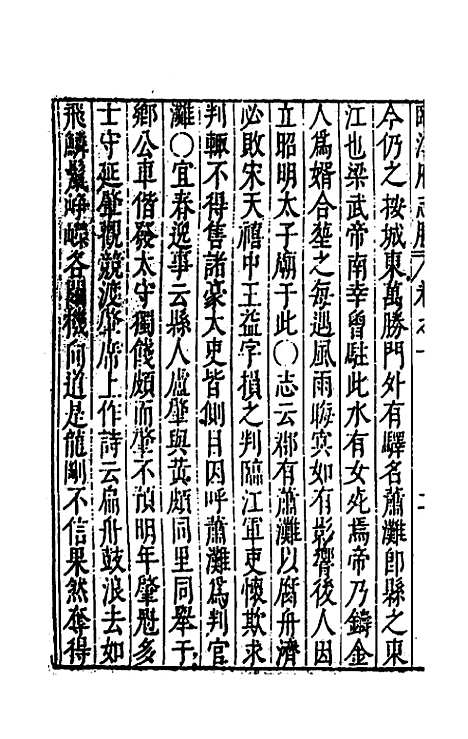 今仍之按城東萬勝門外有驛名蕭灘即縣之東
江也梁武帝南幸曾駐此水有女死焉帝乃鑄金
人爲婿合塟之每遇風雨晦㝠如有影響後人因
立昭明太子廟于此〇志云郡有蕭灘以腐舟濟
必敗宋天禧中王益字損之判臨江軍吏懷欺求
判輙不得售諸豪大吏皆側目因呼蕭灘爲判官
灘〇宜春逸事云縣人盧肇與黄頗同里同舉于
鄉公車偕發太守獨餞頗而肇不預明年肇冠多
士守延肇觀競渡肇席上作詩云扁舟鼓浪去如
飛鱗鬛崢嶸各鬭機向道是龍剛不信果然奪得